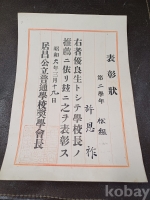 表彰狀
第二學年 松組
許恩祚
右者優良生トシテ學校長ノ
推薦ニ依リ玆ニ之ヲ表彰ス
昭和九年三月十九日
居昌公立普通學校奬學會長
kobay